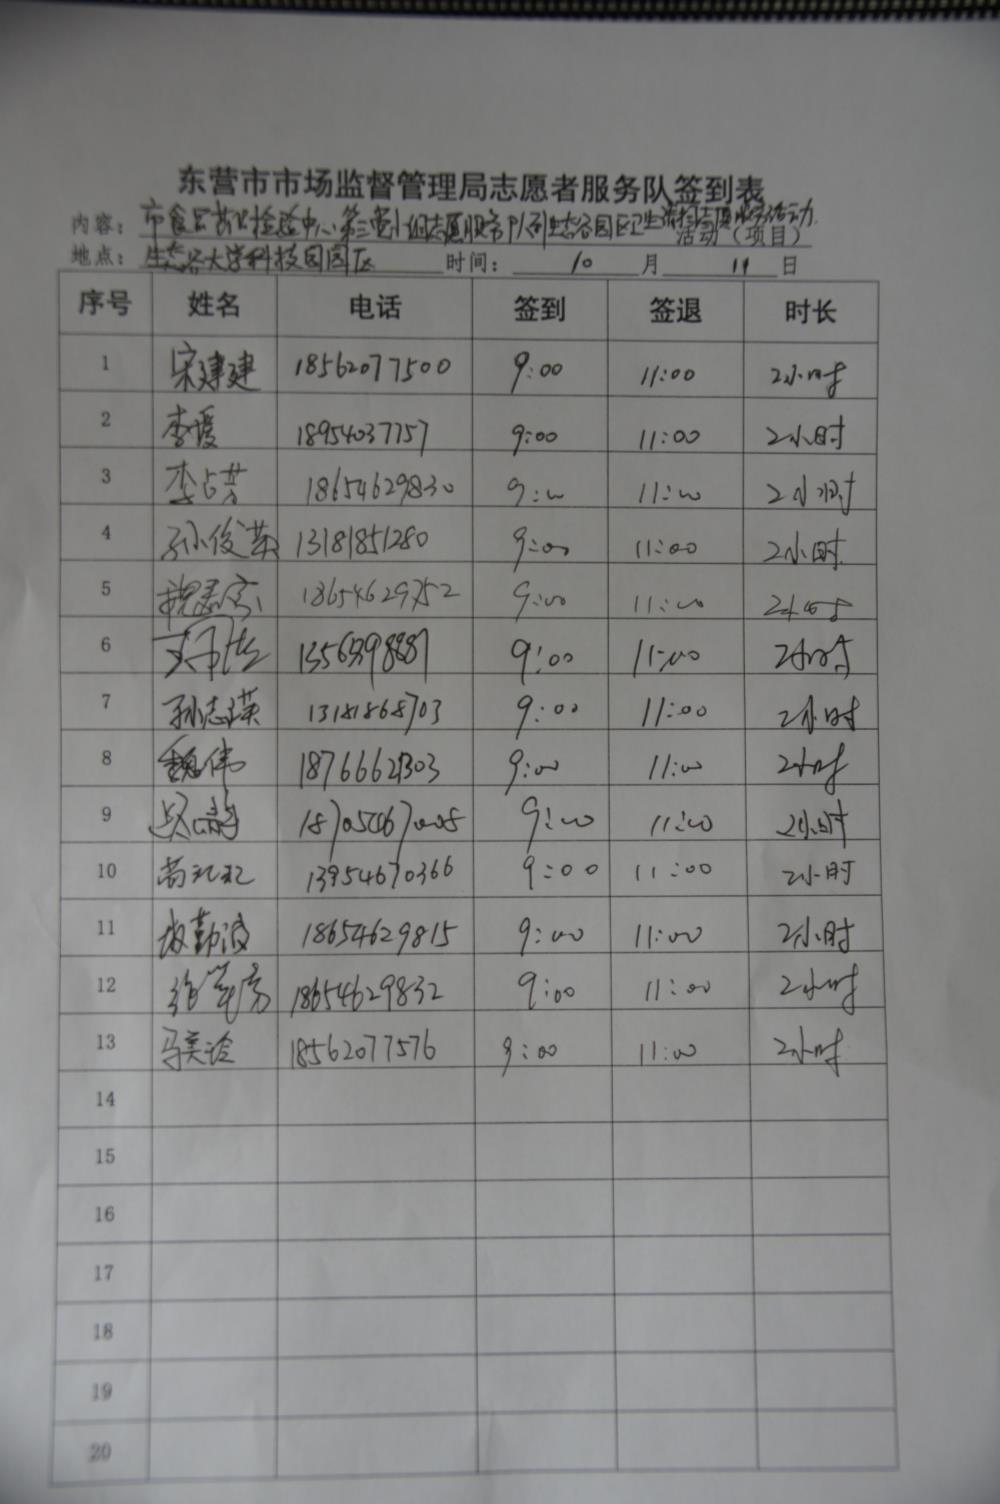 东营市市场监督管理局志愿者服务队签到表
内容：市食品药品检验中心第三党小组志愿服务队到生态谷园区卫生清扫志愿服务活动
活动（项目）
地点：生态谷大学科技园园区 时间：10月11日
序号 姓名 电话 签到 签退 时长
1 宋建建 18562077500 9:00 11:00 2小时
2 李媛 18954037757 9:00 11:00 2小时
3 李占芳 18654629830 9:00 11:00 2小时
4 孙俊英 13181851280 9:00 11:00 2小时
5 18654629752 9:00 11:00 2小时
6 9:00 11:00 2小时
7 孙志瑛 13181868703 9:00 11:00 2小时
8 魏伟 9:00 11:00 2小时
9 9:00 11:00 2小时
10 13954670366 9:00 11:00 2小时
11 18654629815 9:00 11:00 2小时
12 18654629832 9:00 11:00 2小时
13 马美玲 18562077576 9:00 11:00 2小时
14
15
16
17
18
19
20